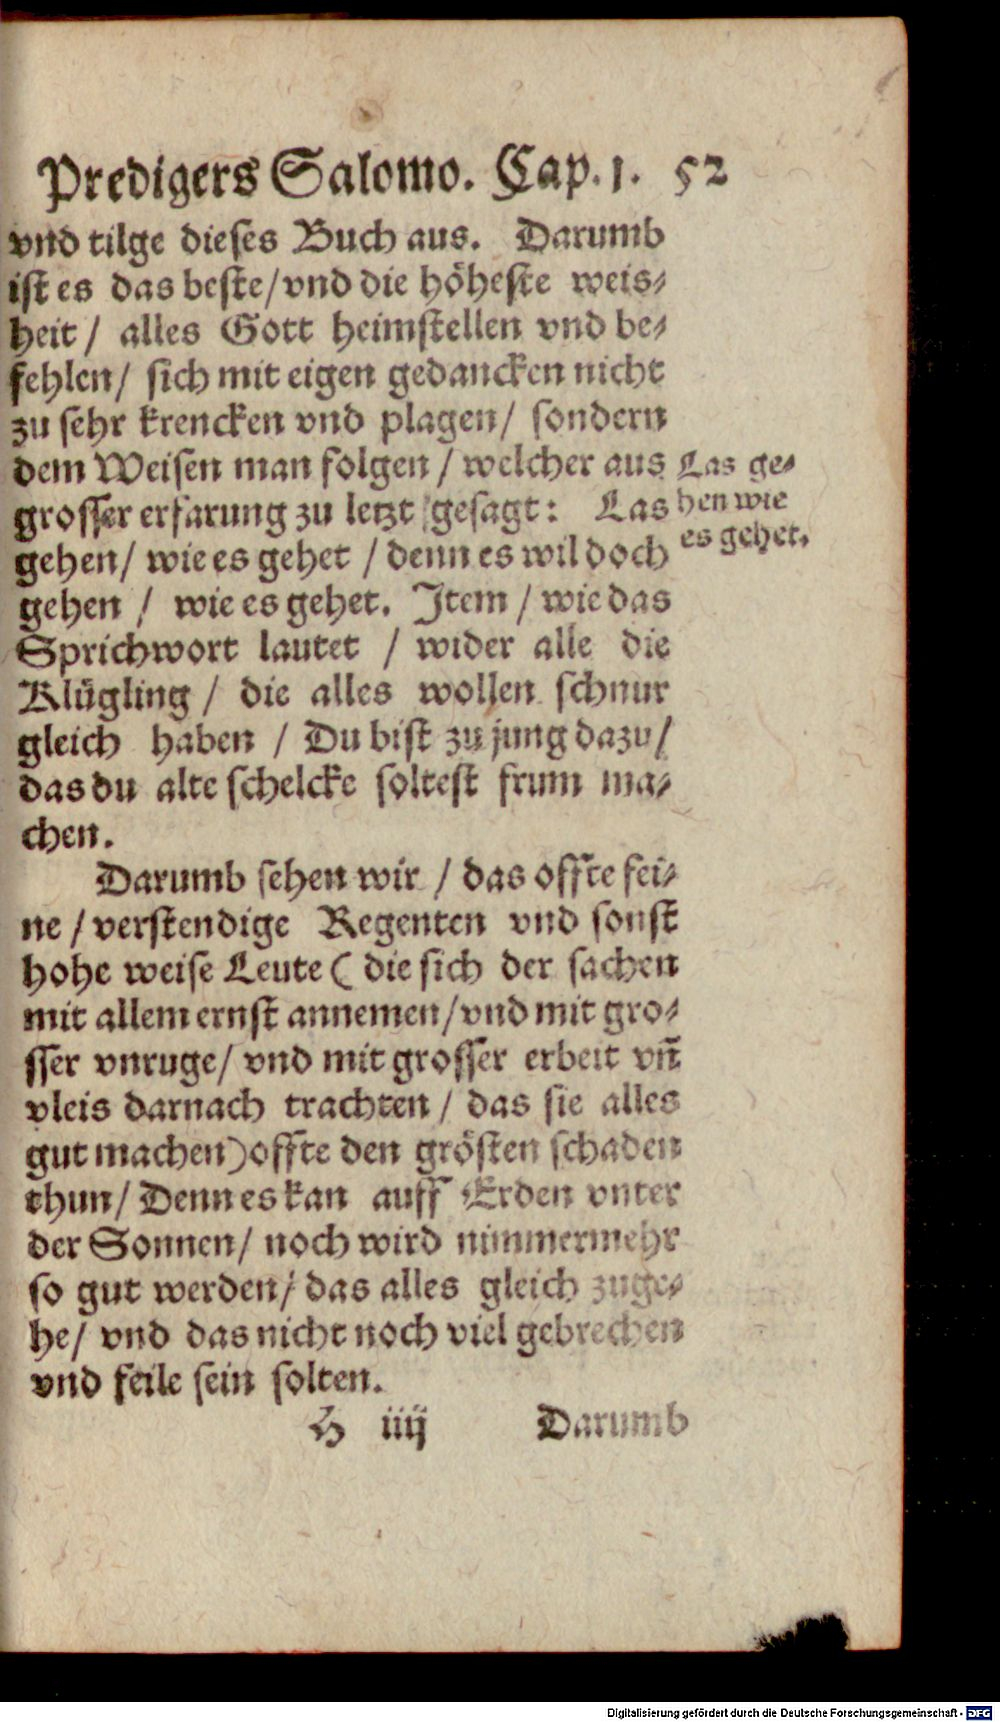 Predigers Salomo. Cap. 1. 52
vnd tilge dieses Buch aus. Darumb
ist es das beste/ vnd die höheste weis-
heit / alles Gott heimstellen vnd be-
fehlen/ sich mit eigen gedancken nicht
zu sehr krencken vnd plagen/ sondern
dem Weisen man folgen / welcher aus
grosser erfarung zu letzt gesagt: Las
gehen/ wie es gehet / denn es wil doch
gehen / wie es gehet. Item / wie das
Sprichwort lautet / wider alle die
Klügling / die alles wollen schnur
gleich haben / Du bist zu jung dazu/
das du alte schelcke soltest frum ma-
chen.
Las ge-
hen wie
es gehet.
Darumb sehen wir / das offte fei-
ne / verstendige Regenten vnd sonst
hohe weise Leute ( die sich der sachen
mit allem ernst annemen/ vnd mit gro-
sser vnruge/ vnd mit grosser erbeit vñ
vleis darnach trachten / das sie alles
gut machen) offte den grösten schaden
thun/ Denn es kan auff Erden vnter
der Sonnen/ noch wird nimmermehr
so gut werden/ das alles gleich zuge-
he/ vnd das nicht noch viel gebrechen
vnd feile sein solten.
H iiij Darumb
Digitalisierung gefördert durch die Deutsche Forschungsgemeinschaft - DFG